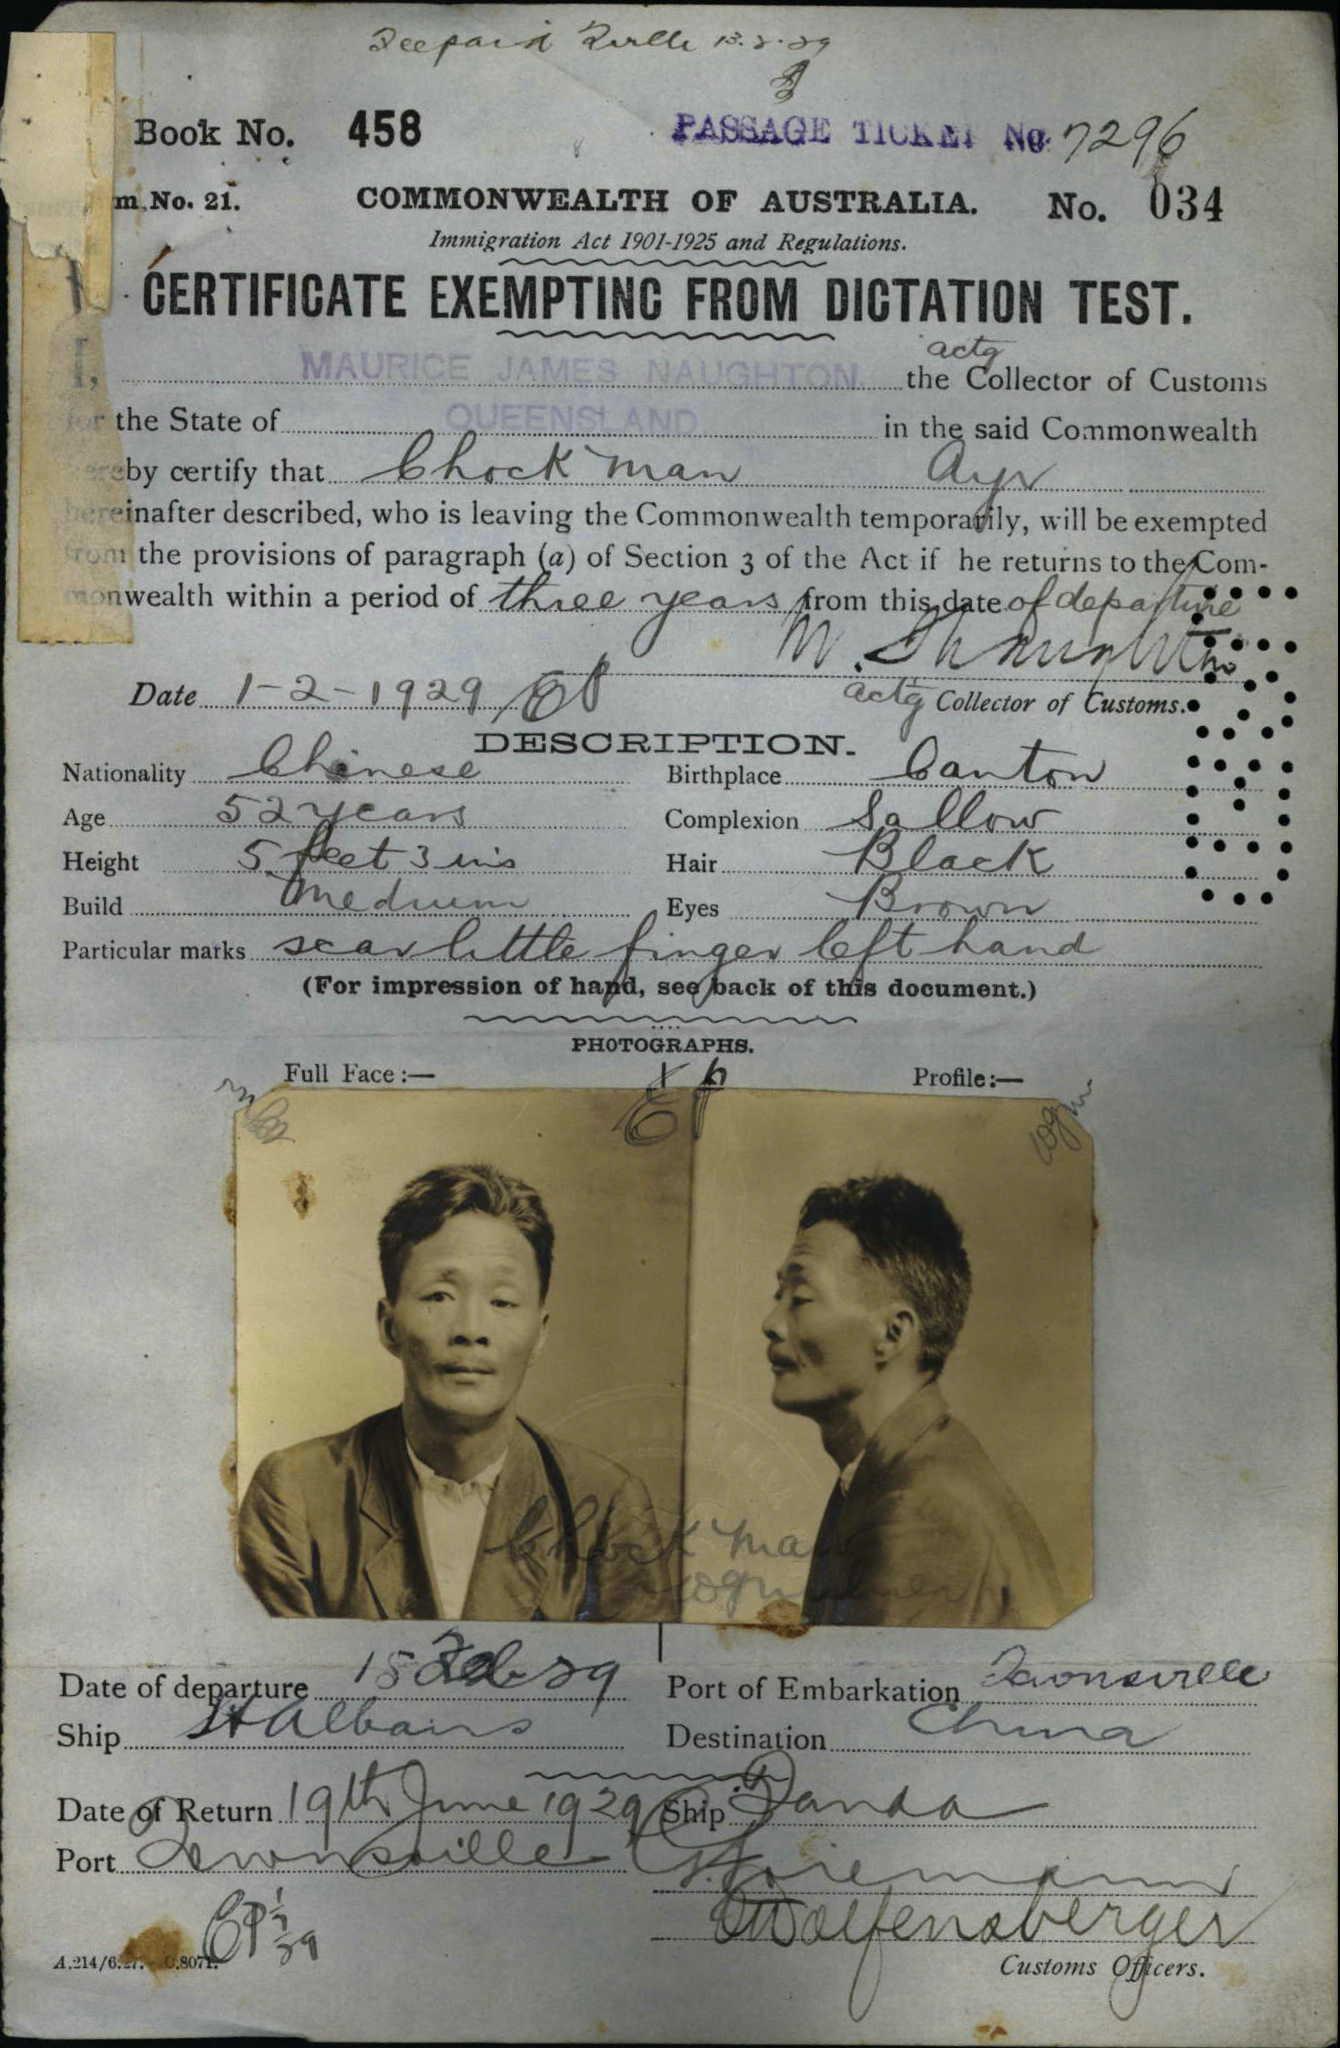 13.2.29
Book No. 458 PASSAGE TICKET No 7296
m No. 21. COMMONWEALTH OF AUSTRALIA. No. 034
Immigration Act 1901-1925 and Regulations.
CERTIFICATE EXEMPTING FROM DICTATION TEST.
actg
I, MAURICE JAMES NAUGHTON the Collector of Customs
for the State of QUEENSLAND in the said Commonwealth
hereby certify that Chock Man Ayr
hereinafter described, who is leaving the Commonwealth temporarily, will be exempted
from the provisions of paragraph (a) of Section 3 of the Act if he returns to the Com-
monwealth within a period of three years from this date of departure
Date 1-2-1929 actg Collector of Customs.
DESCRIPTION.
Nationality Chinese Birthplace Canton
Age 52 years Complexion Sallow
Height 5 feet 3 ins Hair Black
Build Medium Eyes Brown
Particular marks scar little finger left hand
(For impression of hand, see back of this document.)
PHOTOGRAPHS.
Full Face:— Profile:—
Chock Man
Date of departure Feb 29 Port of Embarkation Townsville
Ship St Albans Destination China
Date of Return 19th June 1929 Ship Tanda
Port Townsville
Wolfensberger
Customs Officers.